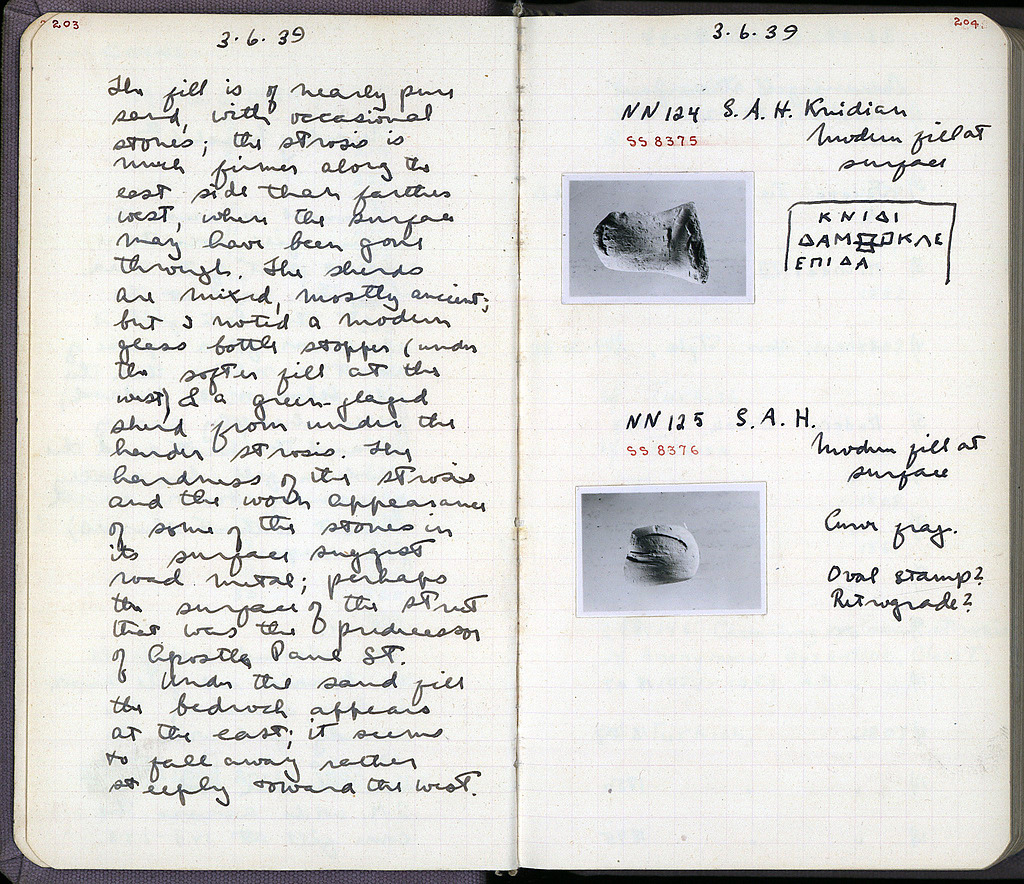 203
3·6·39
The fill is of nearly pure
sand, with occasional
stones; the strosis is
much firmer along the
east side than farther
west, where the surface
may have been gone
through. The sherds
are mixed, mostly ancient;
but I noted a modern
glass bottle stopper (under
the softer fill at the
west) & a green-glazed
sherd from under the
harder strosis. The
hardness of the strosis
and the worn appearance
of some of the stones in
its surface suggest
road metal; perhaps
the surface of the street
that was the predecessor
of Apostle Paul St.
Under the sand fill
the bedrock appears
at the east; it seems
to fall away rather
steeply toward the west.
204
3·6·39
NN 124 S.A.H. Knidian
SS 8375
Modern fill at
surface
ΚΝΙΔΙ
ΔΑΜΟΚΛΕ
ΕΠΙΔΑ
NN 125 S.A.H.
SS 8376
Modern fill at
surface
Curve frag.
Oval stamp?
Retrograde?